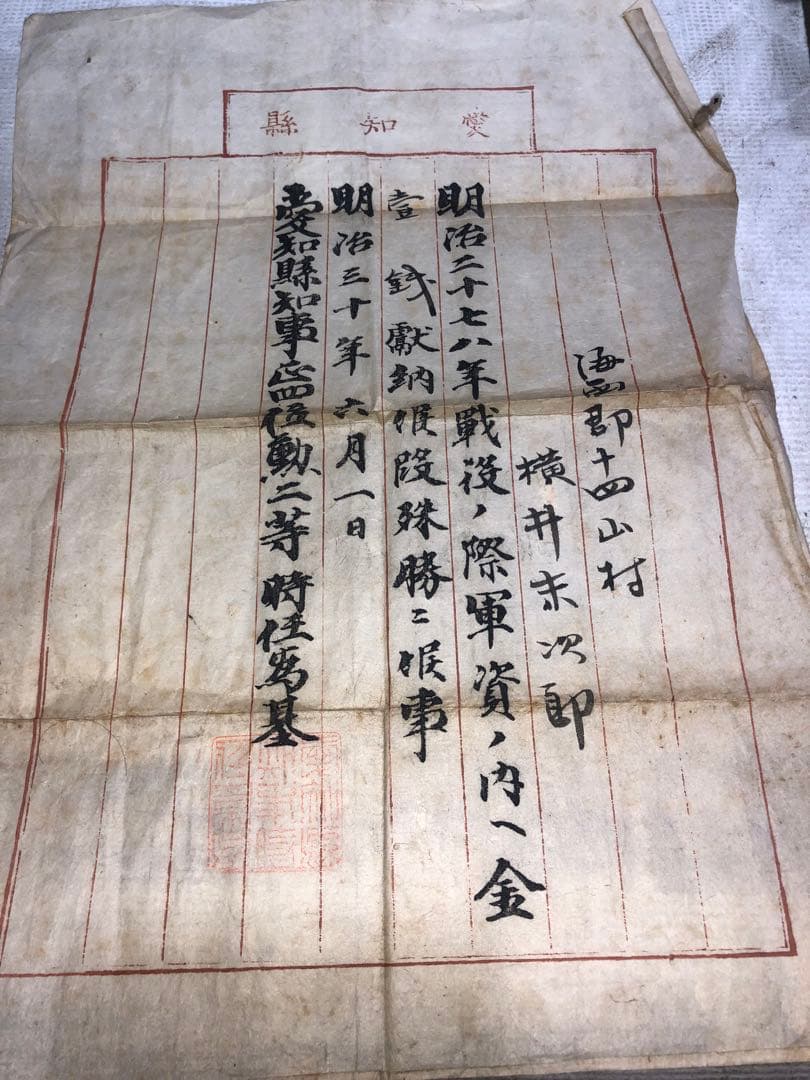 愛知縣
海西郡十四山村
横井末次郎
明治二十七八年戦役ノ際軍資ノ内ヘ金
壹錢獻納候段殊勝ニ候事
明治三十年六月一日
愛知縣知事正四位勲二等時任為基